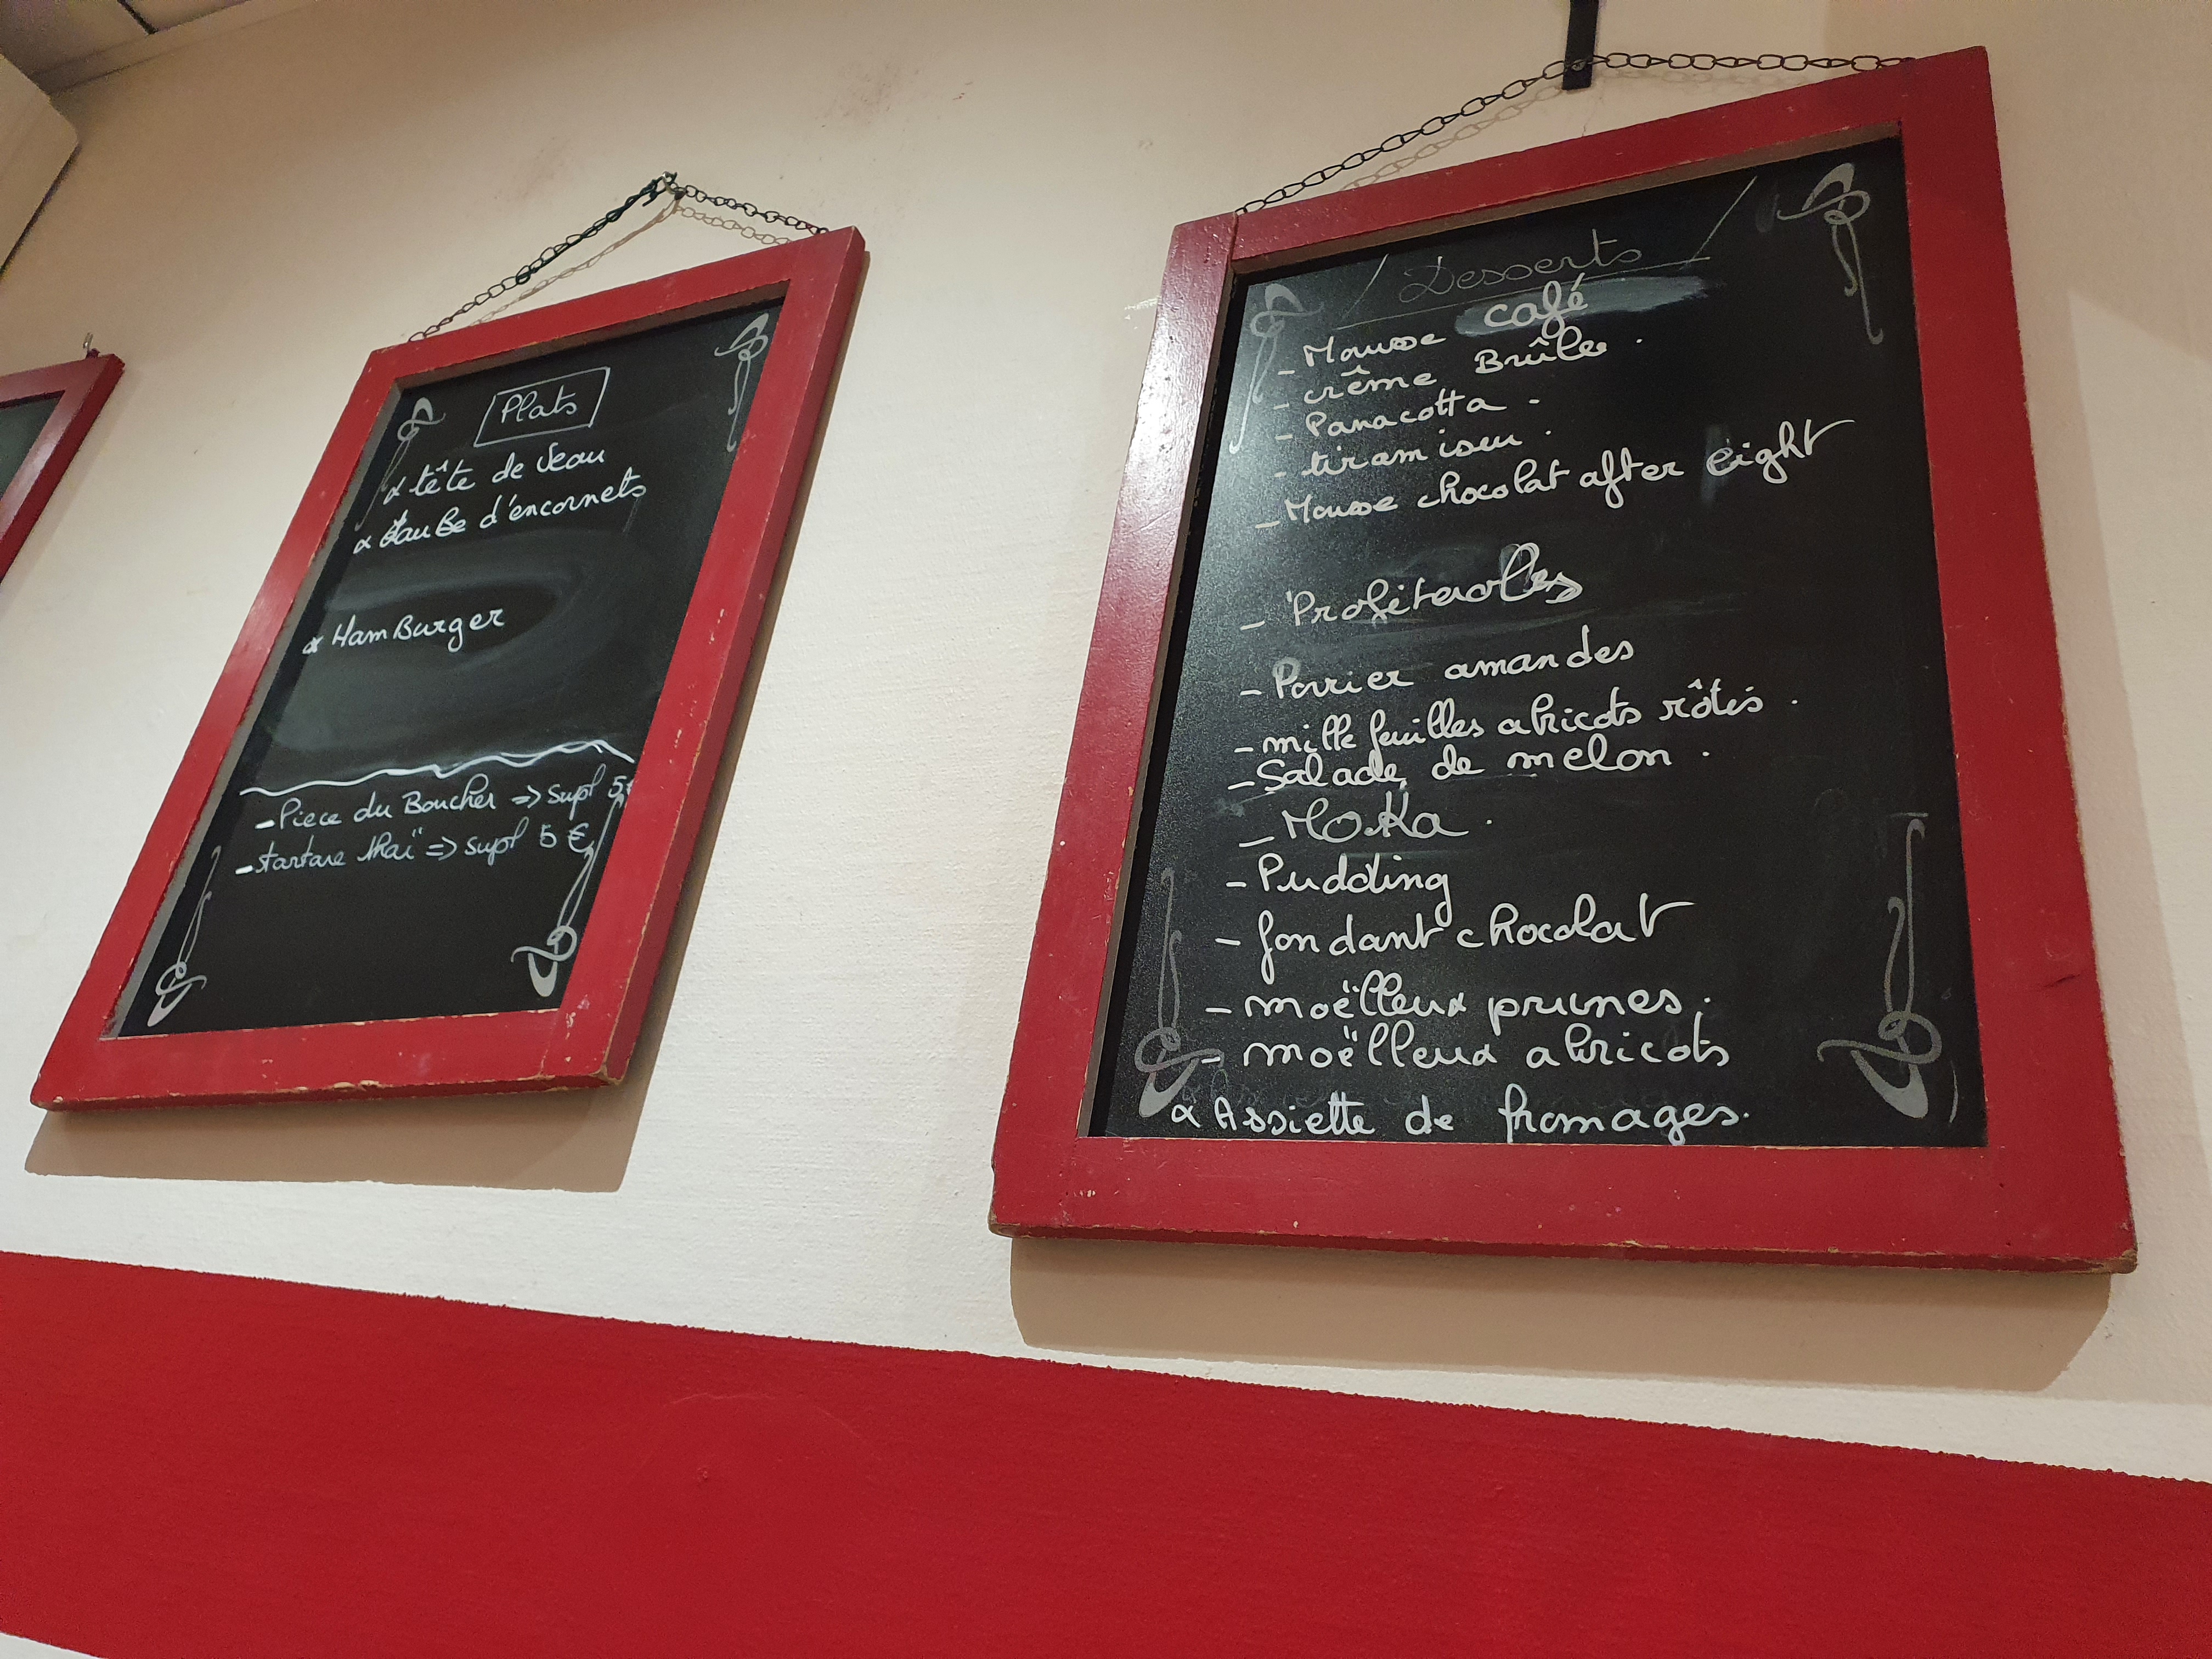 Plats
tête de Veau
dauBe d'encornets
HamBurger
- Piece du Boucher => supl 5€
- tartare thaï => supl 5 €
Desserts
- Mousse café
- crême Brûlee .
- Panacotta .
- tiramisu .
- Mousse chocolat after eight
- Profiteroles
- Poirier amandes
- mille feuilles abricots rôtis .
- Salade de melon .
- MOKa .
- Pudding
- fondant chocolat
- moëlleux prunes .
- moëlleux abricots
Assiette de fromages.